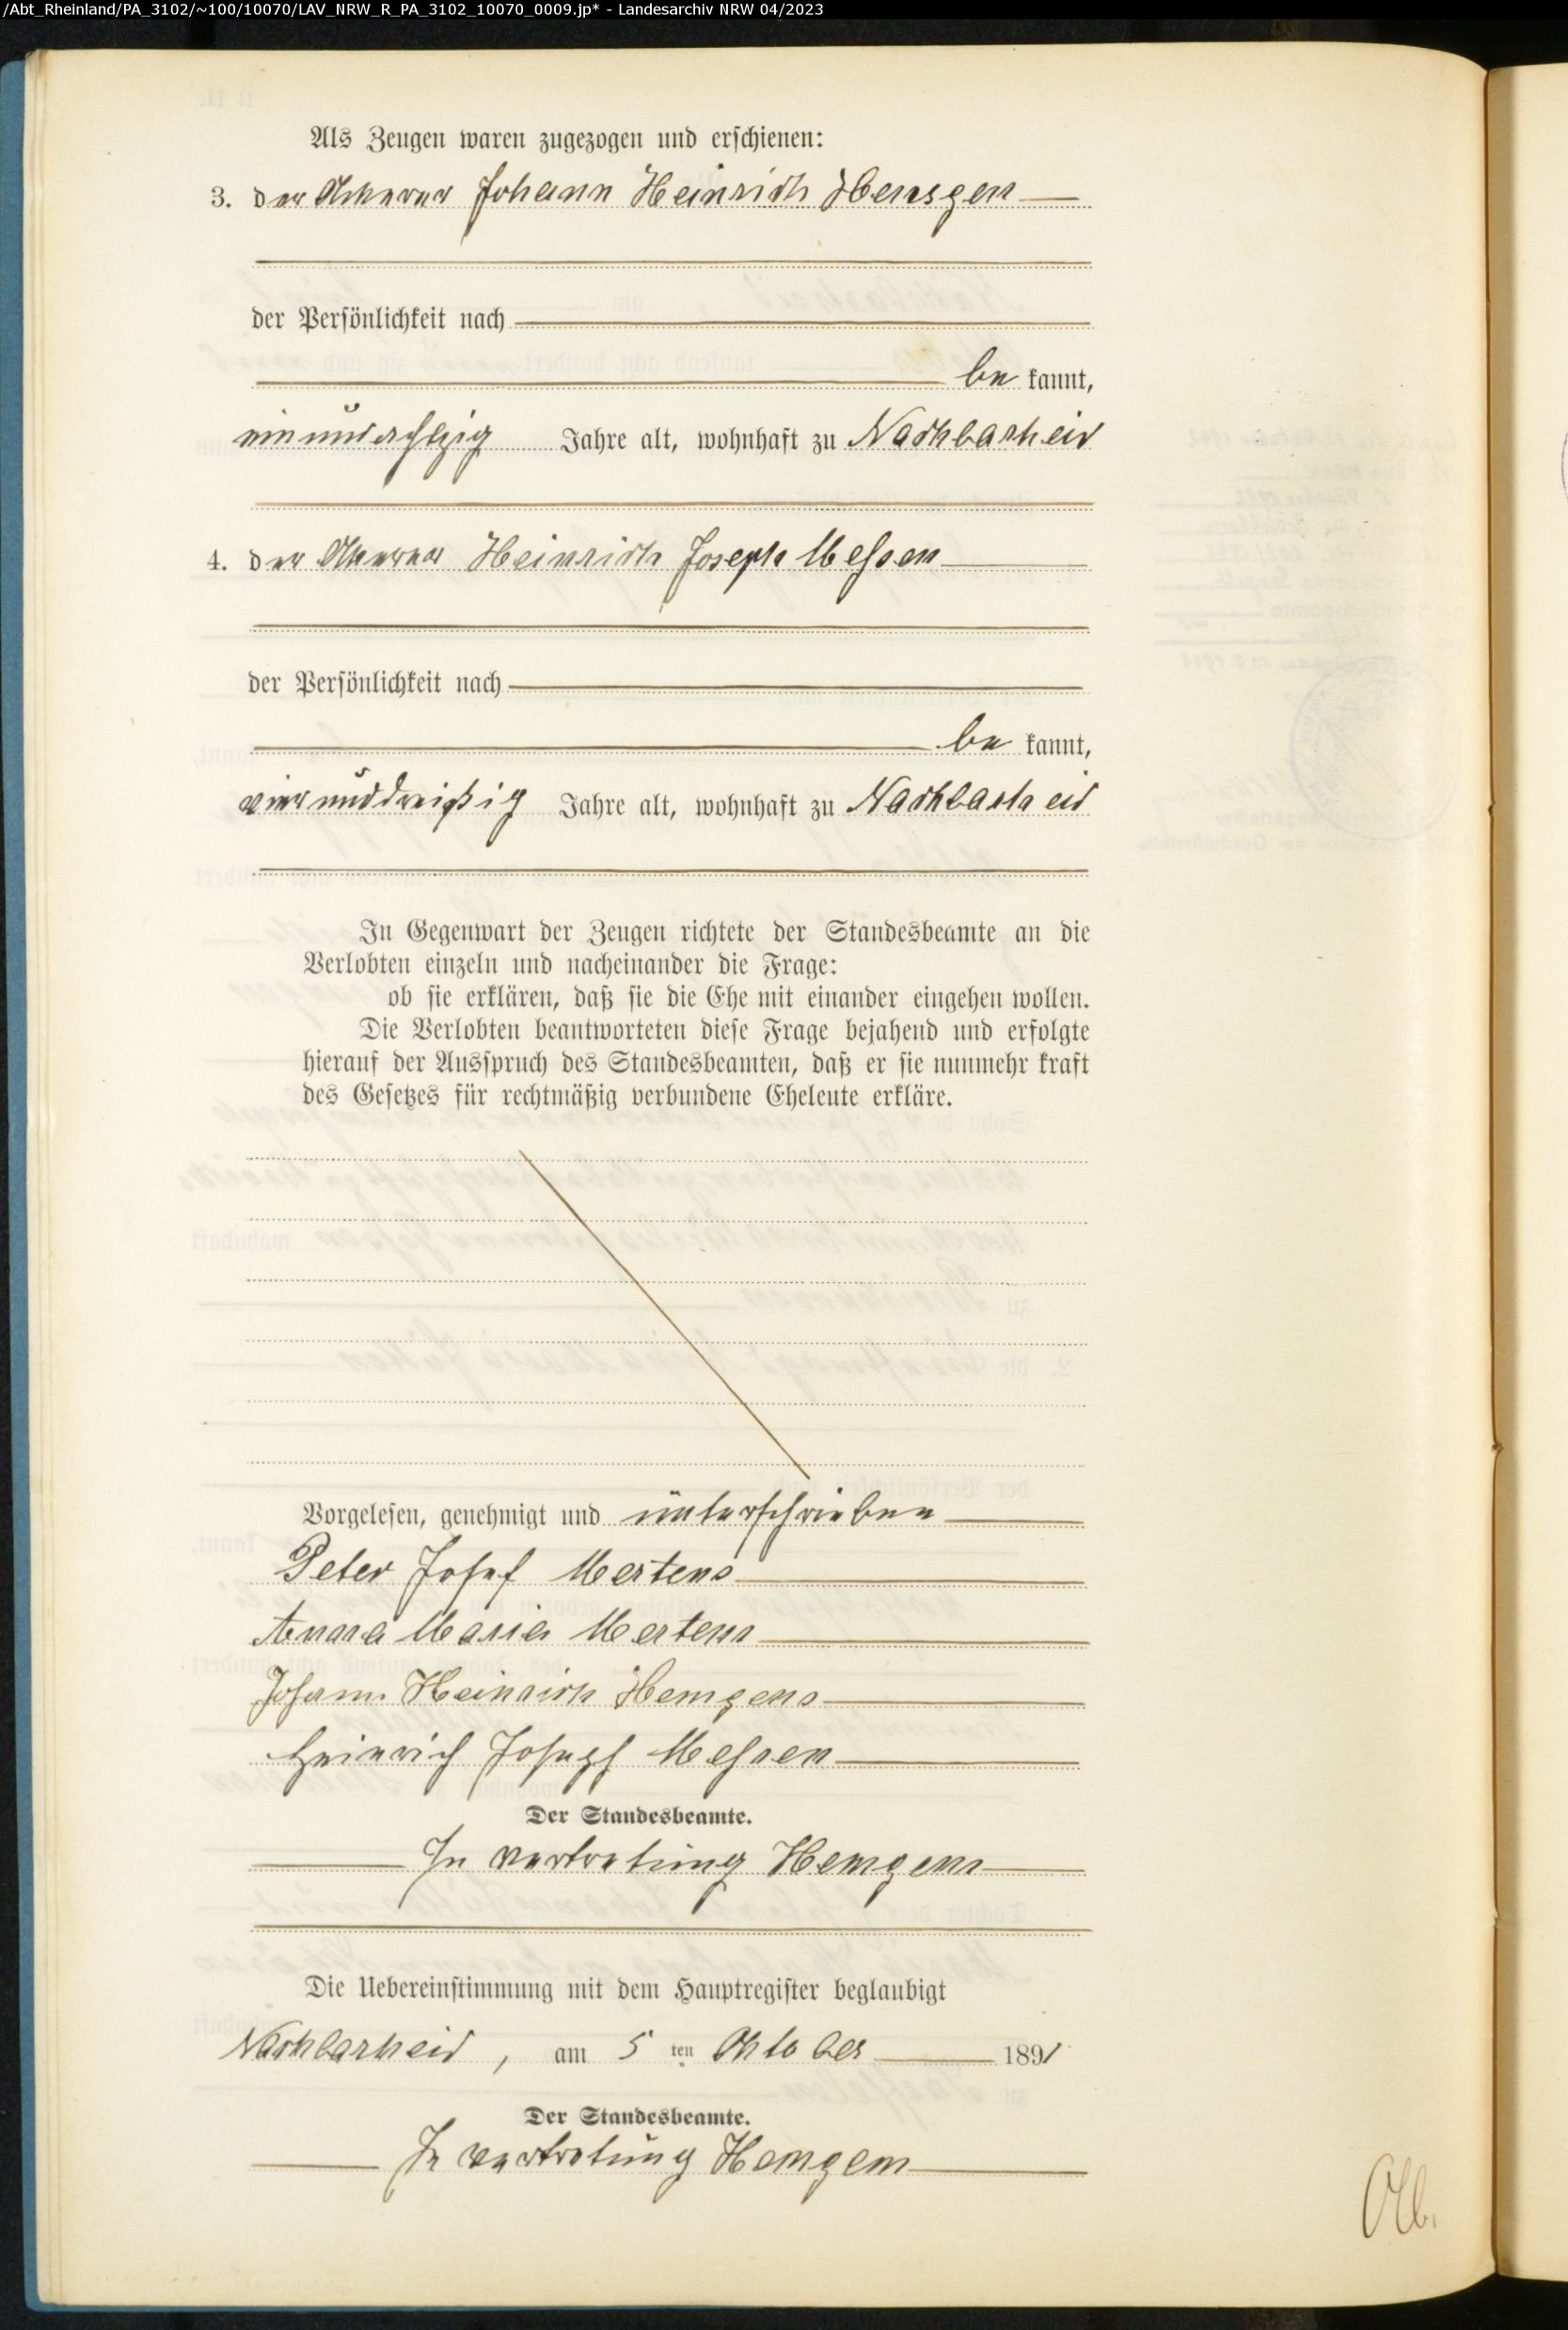 /Abt_Rheinland/PA_3102/~100/10070/LAV_NRW_R_PA_3102_10070_0009.jp* - Landesarchiv NRW 04/2023
Als Zeugen waren zugezogen und erschienen:
3. der Ackerer Johann Heinrich Hemgen
der Persönlichkeit nach
be kannt,
einundachtzig Jahre alt, wohnhaft zu Nachbarheid
4. der Ackerer Heinrich Joseph Messen
der Persönlichkeit nach
be kannt,
vierunddreißig Jahre alt, wohnhaft zu Nachbarheid
In Gegenwart der Zeugen richtete der Standesbeamte an die
Verlobten einzeln und nacheinander die Frage:
ob sie erklären, daß sie die Ehe mit einander eingehen wollen.
Die Verlobten beantworteten diese Frage bejahend und erfolgte
hierauf der Ausspruch des Standesbeamten, daß er sie nunmehr kraft
des Gesetzes für rechtmäßig verbundene Eheleute erkläre.
Vorgelesen, genehmigt und unterschrieben
Peter Josef Mertens
Anna Maria Mertens
Johann Heinrich Hemgens
Heinrich Joseph Messen
Der Standesbeamte.
In vertretung Hemgens
Die Uebereinstimmung mit dem Hauptregister beglaubigt
Nachbarheid, am 5 ten Oktober 1891
Der Standesbeamte.
In vertretung Hemgens